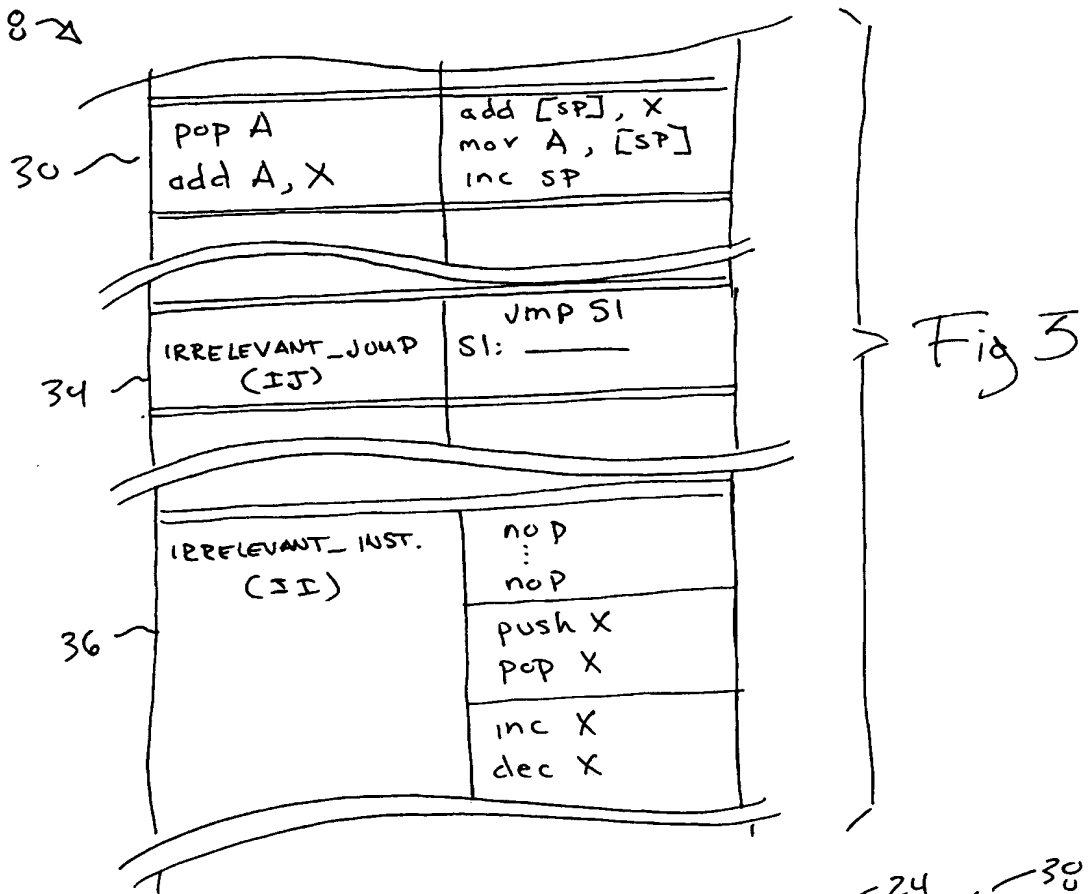 8
pop A
add A, X
add [SP], X
mov A, [SP]
inc SP
30
IRRELEVANT_JUMP
(IJ)
jmp S1
S1:
34
Fig 3
IRRELEVANT_INST.
(II)
nop
nop
push X
pop X
inc X
dec X
36
24
38